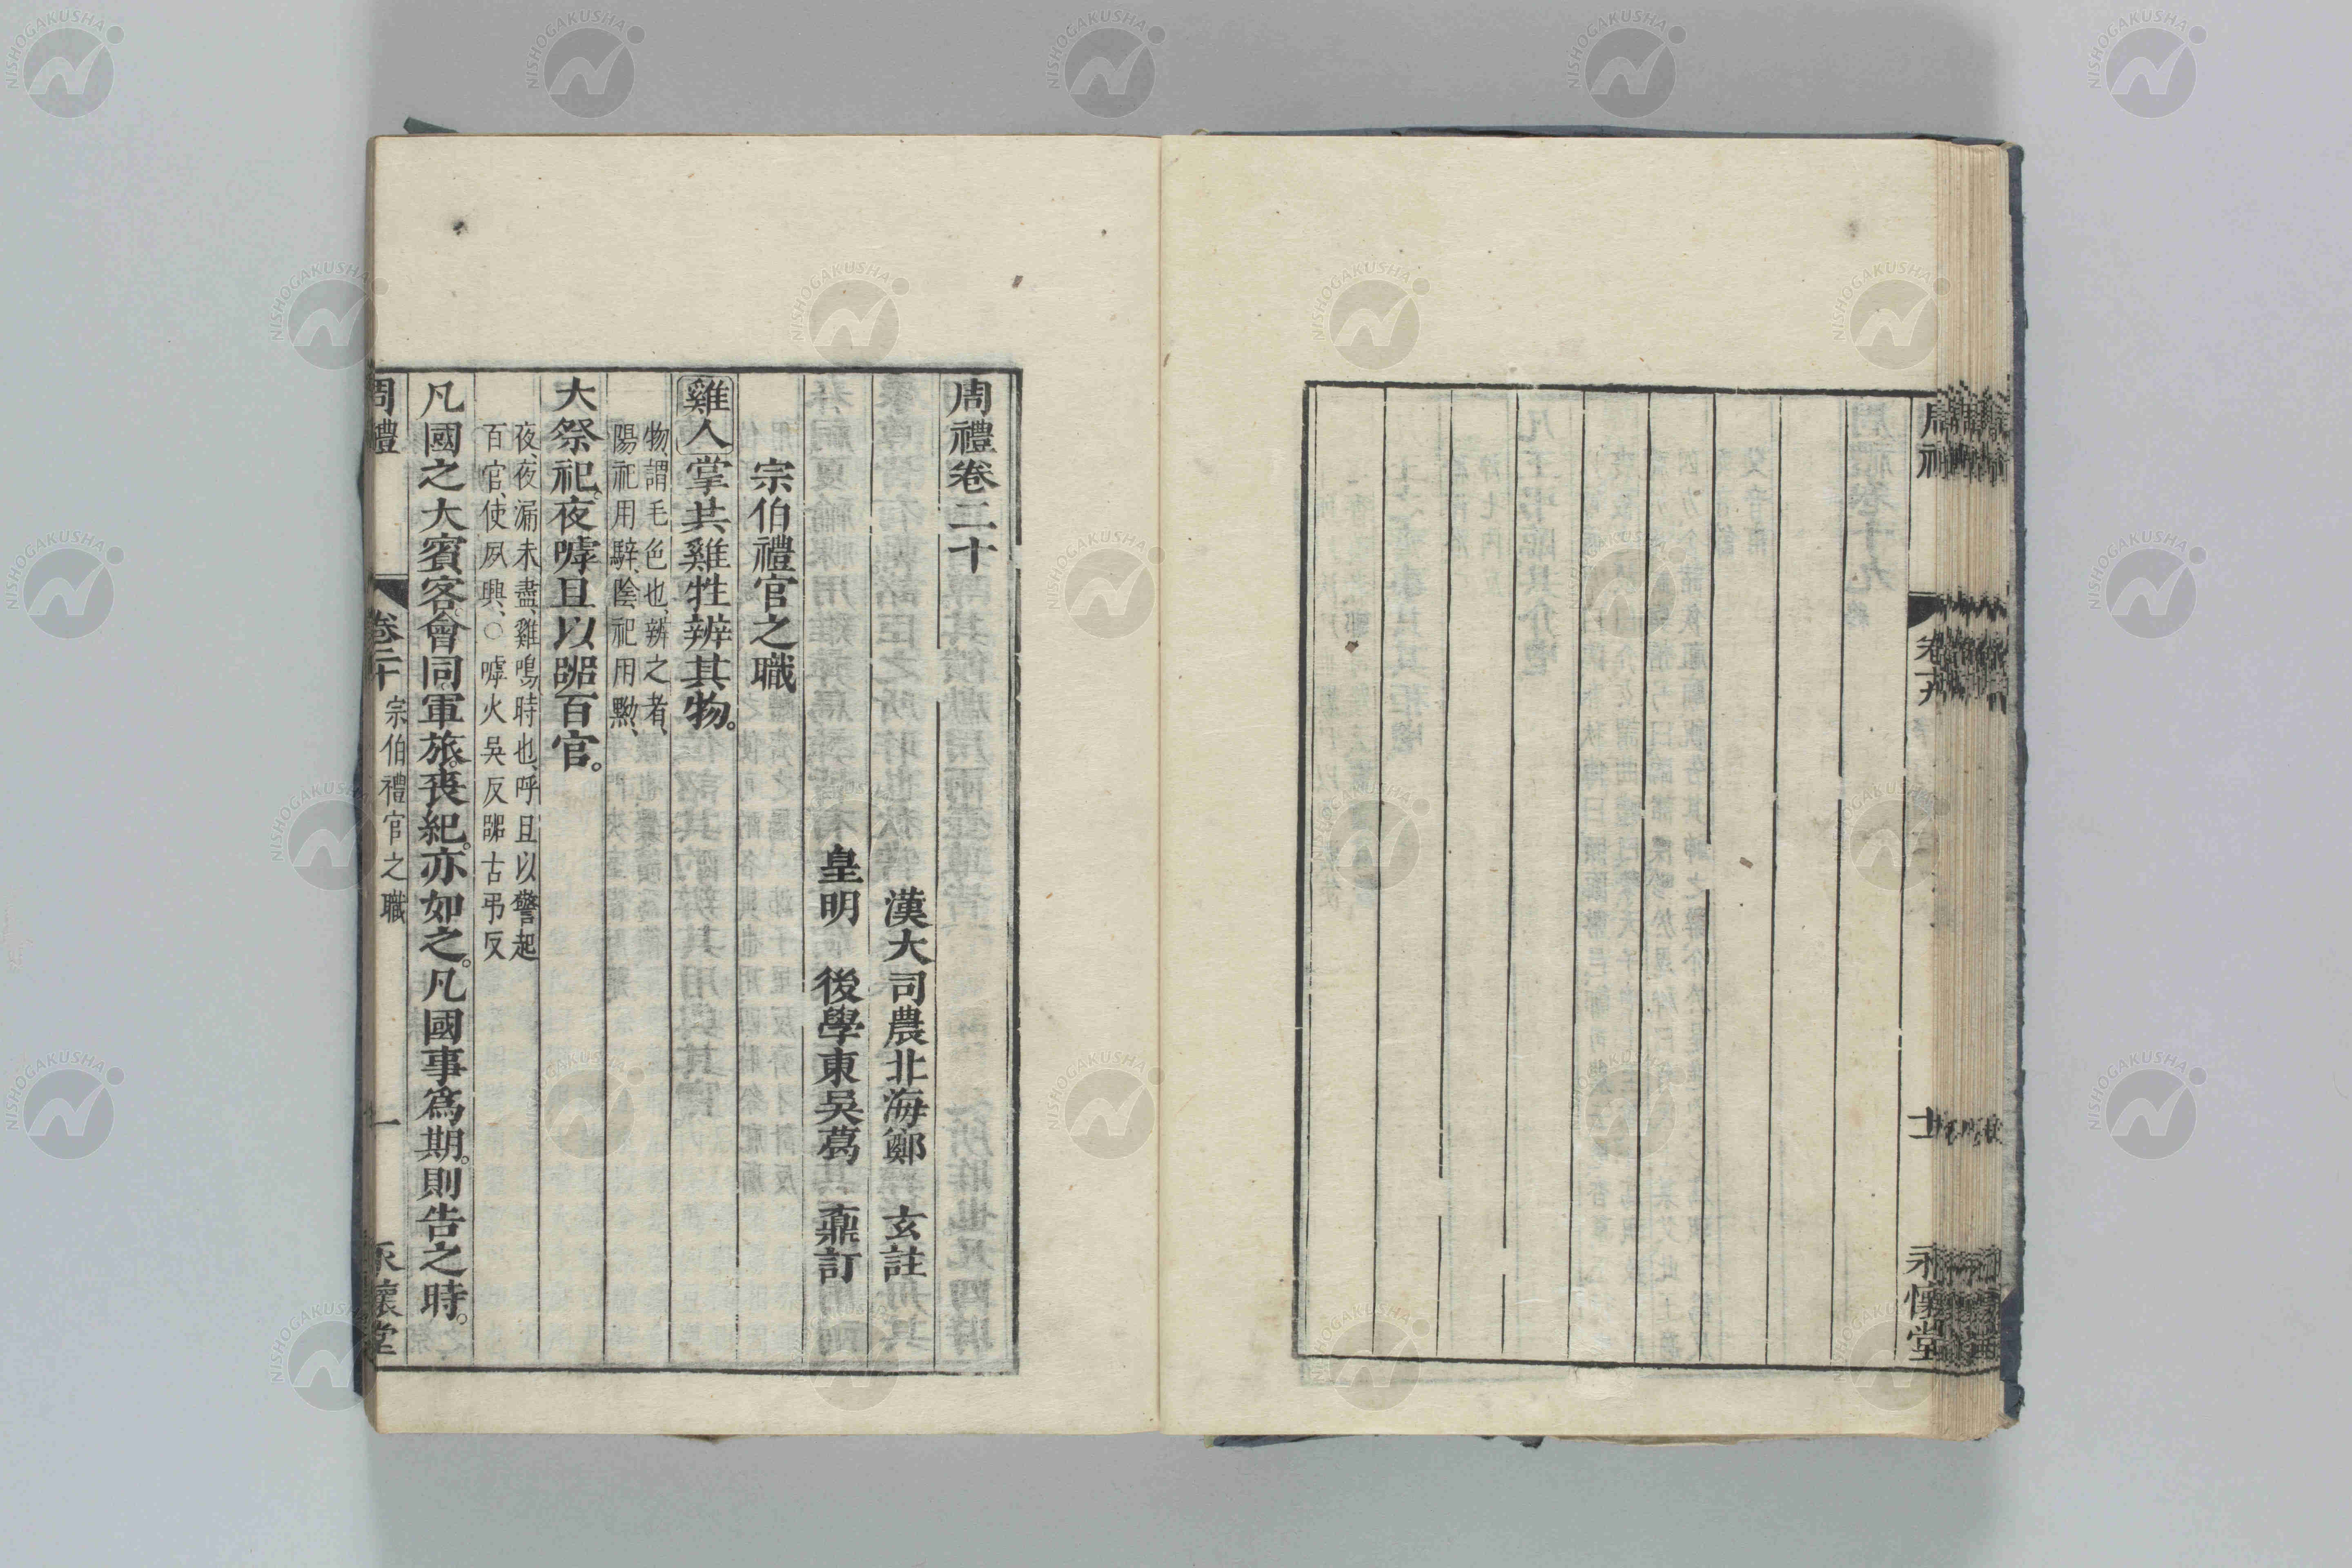 周禮
卷十九
十一
永懷堂
周禮卷二十
漢大司農北海鄭　玄註
皇明　後學東吳葛　鼒訂
宗伯禮官之職
雞人掌共雞牲辨其物。
物、謂毛色也、辨之者、
陽祀用騂、陰祀用黝、
大祭祀。夜嘑旦以嘂百官。
夜、夜漏未盡、雞鳴時也、呼旦以警起
百官、使夙興、○嘑火吳反嘂古弔反
凡國之大賓客。會同。軍旅。喪紀。亦如之。凡國事爲期。則告之時。
周禮
卷二十
宗伯禮官之職
一
永懷堂
NISHOGAKUSHA